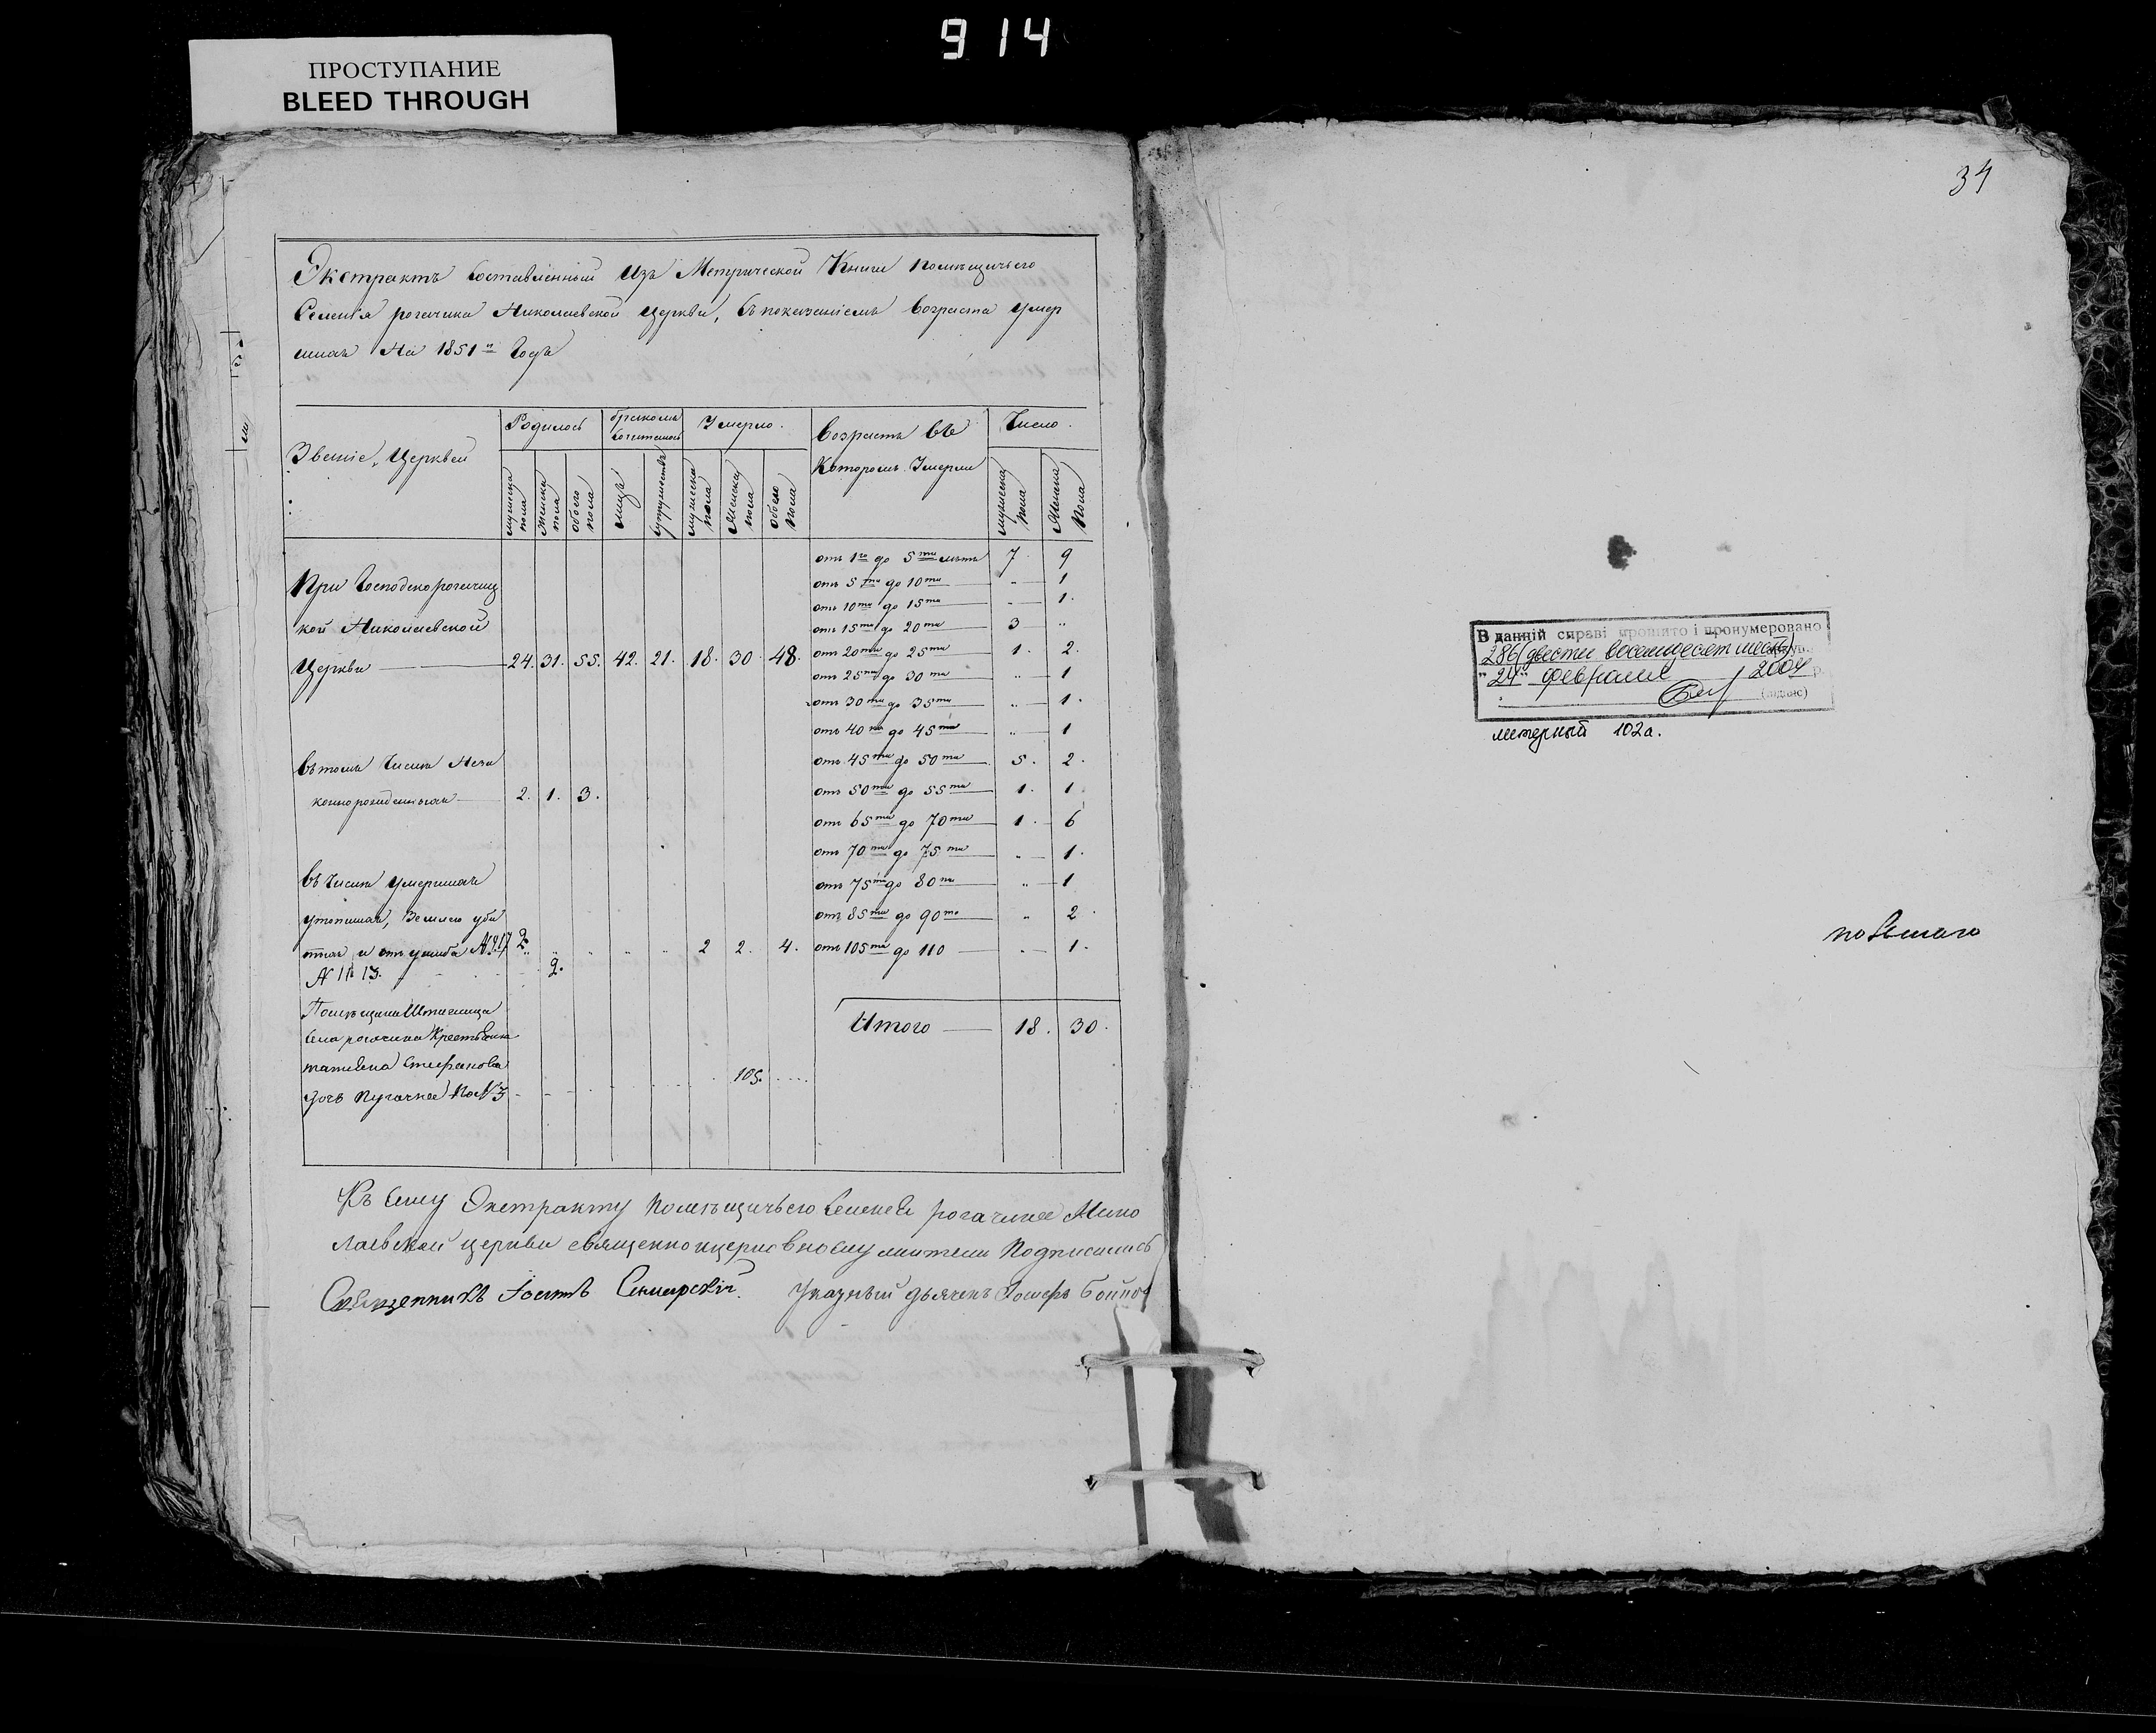 914
ПРОСТУПАНИЕ
BLEED THROUGH
34
Экстрактъ Составленный Изъ Метрической Книги помѣщичьего
Селенія рогачика Николаевской Церкви, съ показаніемъ возраста умер
шихъ На 1851й Годъ
Званіе Церквей
Родилось
бракомъ сочеталось
Умерло.
возрастъ въ
Которомъ Умерли
Число.
мужеска пола
Женска пола
обоего пола
лицъ
супружествъ
мужеска пола
Женска пола
обоего пола
мужеска пола
Женска пола
При Господскорогачиц
кой Николаевской
Церкви 24. 31. 55. 42. 21. 18. 30. 48.
отъ 1го до 5ти лѣтъ 7. 9
отъ 5ти до 10ти " 1
отъ 10ти до 15ти - 1.
отъ 15ти до 20ти 3 "
отъ 20ти до 25ти 1. 2.
отъ 25ти до 30ти " 1
отъ 30ти до 35ти " 1.
отъ 40ти до 45ти " 1
отъ 45ти до 50ти 5. 2.
отъ 50ти до 55ти 1. 1.
отъ 65ти до 70ти 1. 6
отъ 70ти до 75ти " 1.
отъ 75ти до 80ти " 1
отъ 85ти до 90то " 2.
отъ 105ти до 110 - 1.
Итого 18. 30.
въ томъ Числѣ Неза
коннорожденныхъ 2. 1. 3.
въ Числѣ умершихъ
утопшихъ, Землею уби
тыхъ и отъ ушиба 2 2. 4.
N 11. 13. 2.
села рогачика
татиана Стефанова
дочь 105.
Къ Сему Экстракту помѣщичьего Селенія рогачика Нико
лаевской церкви священноицерковнослужители Подписались
Священникъ Указный дьячекъ
В данній справі прошито і пронумеровано
286 (двести восемьдесят шесть)
"24" февраля 2004 р.
(підпис)
литерный 102а.